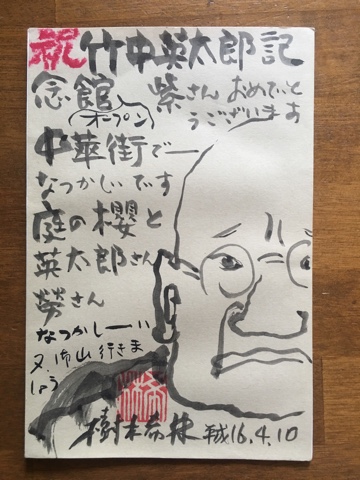 祝竹中英太郎記
念館(オープン) 紫さん おめでと
うございます
中華街でー
なつかしいです
庭の櫻と
英太郎さん
労さん
なつかしーい
又、行きま
しょう
樹木希林 平成16.4.10